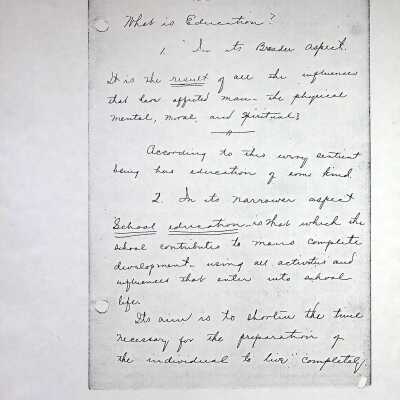 What is Education?
1. In its Broader aspect.
It is the result of all the influences
that have affected man - the physical
mental, moral, and spiritual
According to this every sentient
being has education of some kind.
2. In its narrower aspect
School education is that which the
school contributes to man's complete
development - using all activities and
influences that enter into school
life.
Its aim is to shorten the time
necessary for the preparation of
the individual to live "completely.